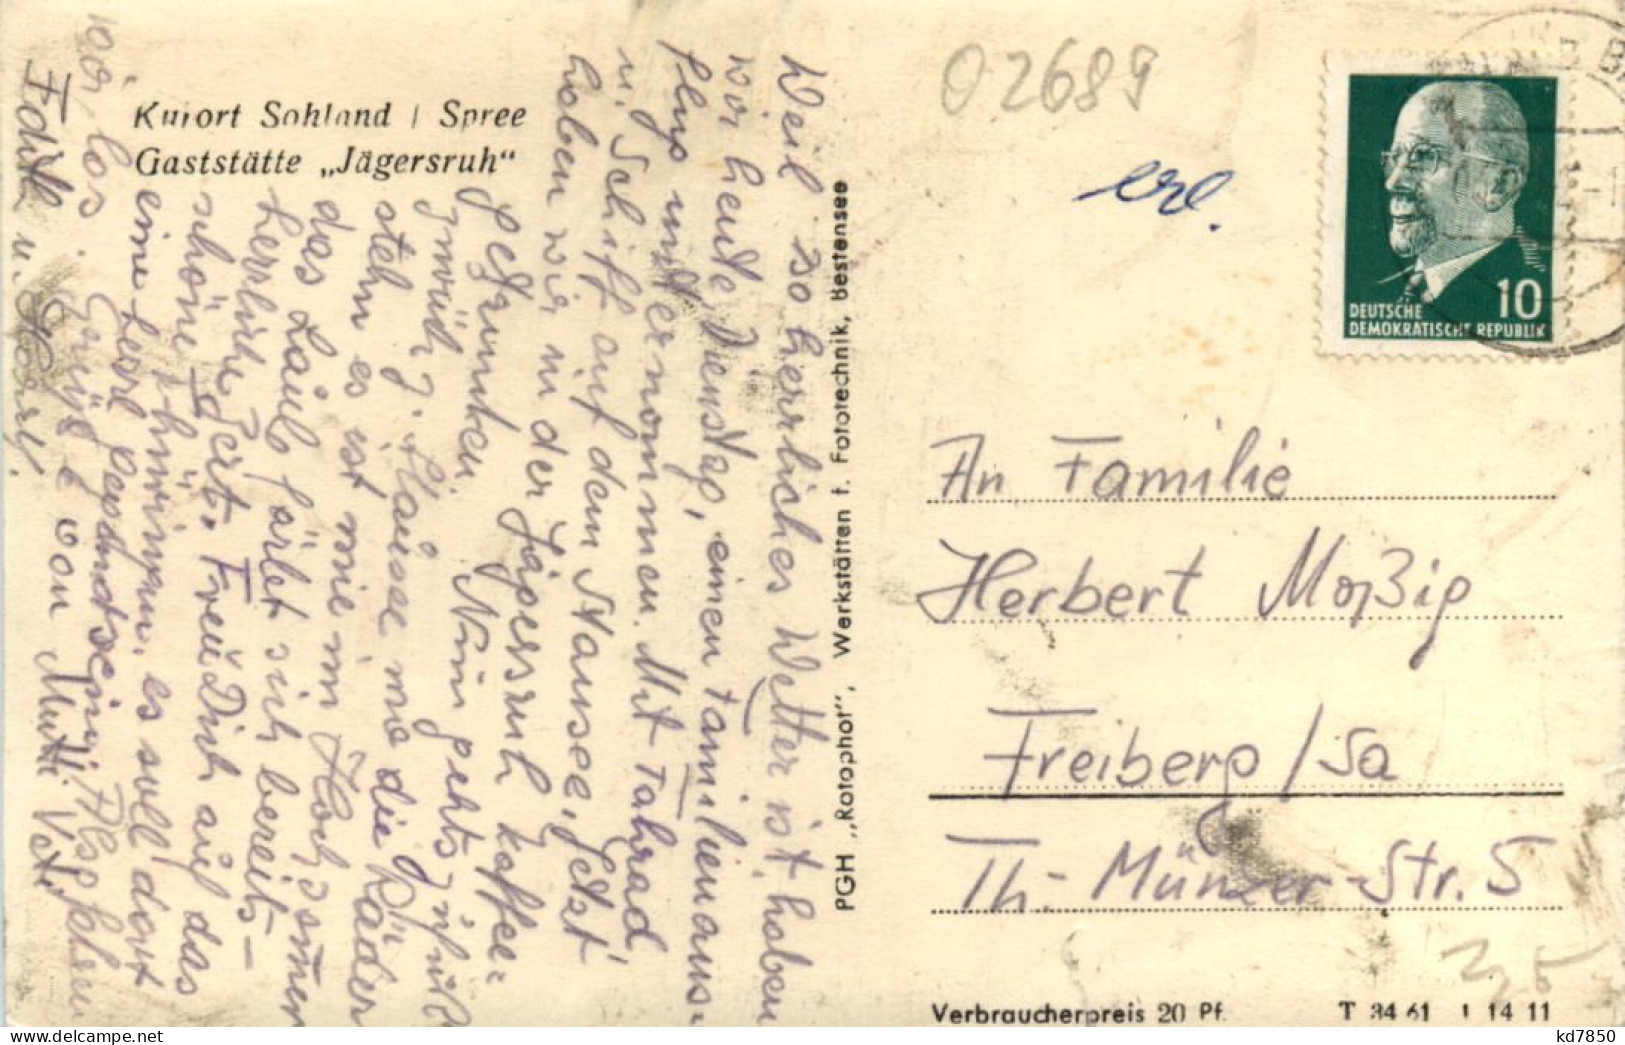 Kurort Sohland / Spree
Gaststätte „Jägersruh“
Weil so herrliches Wetter ist, haben
wir heute, Dienstag, einen Familienaus-
flug unternommen. Mit Fahrrad,
u. Schiff auf dem Stausee. Jetzt
haben wir in der Jägersruh Kaffee
getrunken. Nun gehts
zurück z. Hause wo die Räder
stehn es ist wie im Hochsommer
das Laub färbt sich bereits
herrliche Zeit. Freu Dich auf das
schöne es soll dort
eine
los. Grüße von Mutti Vati
Edith u.
PGH „Rotophot“, Werkstätten f. Fototechnik, Bestensee
02689
erl.
DEUTSCHE
DEMOKRATISCHE REPUBLIK
10
An Familie
Herbert Moßig
Freiberg/Sa
Th.-Münzer-Str. 5
Verbraucherpreis 20 Pf.
T 34 61 1 14 11
kd7850